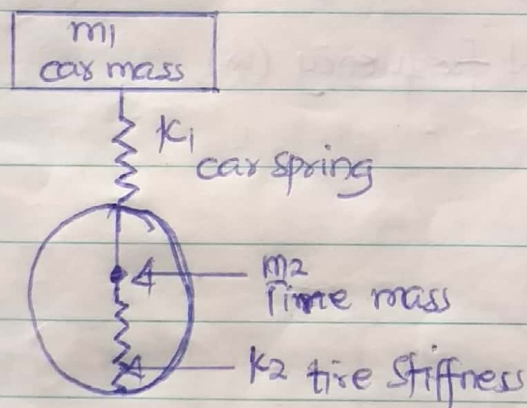 m1
car mass
K1
car spring
m2
Time mass
K2 tire stiffness